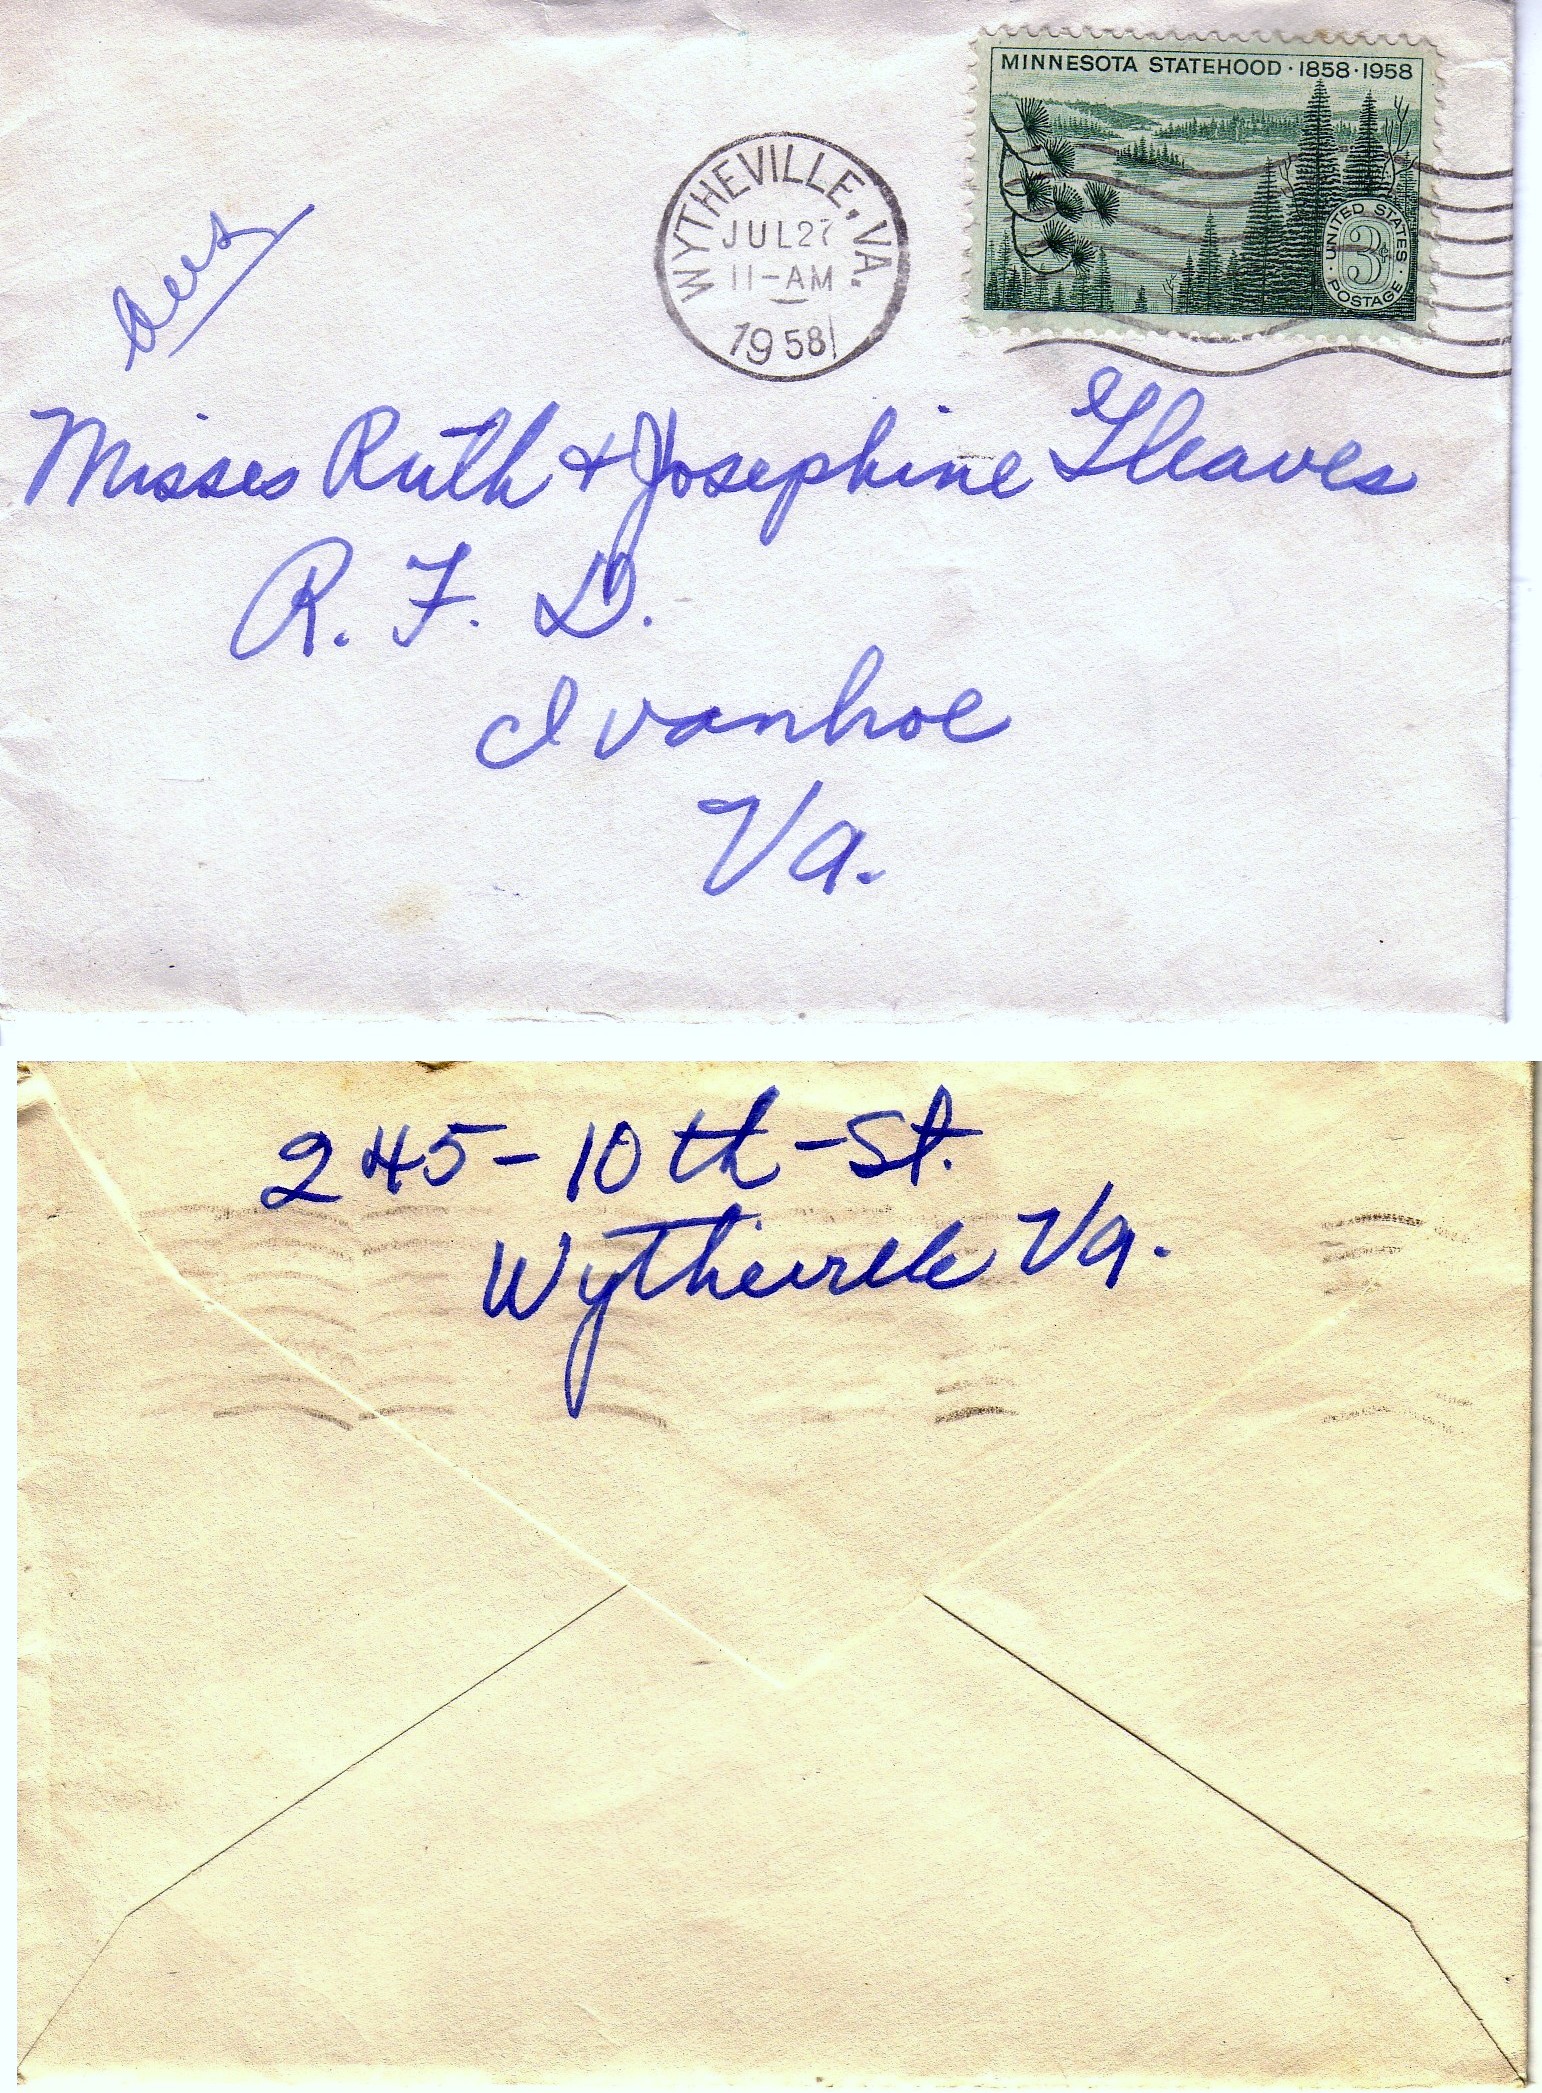 MINNESOTA STATEHOOD · 1858 · 1958
WYTHEVILLE, VA.
JUL 27
11-AM
1958
UNITED STATES
3¢
POSTAGE
Misses Ruth & Josephine Gleaves
R. F. D.
Ivanhoe
Va.
245 - 10th - St.
Wytheville Va.